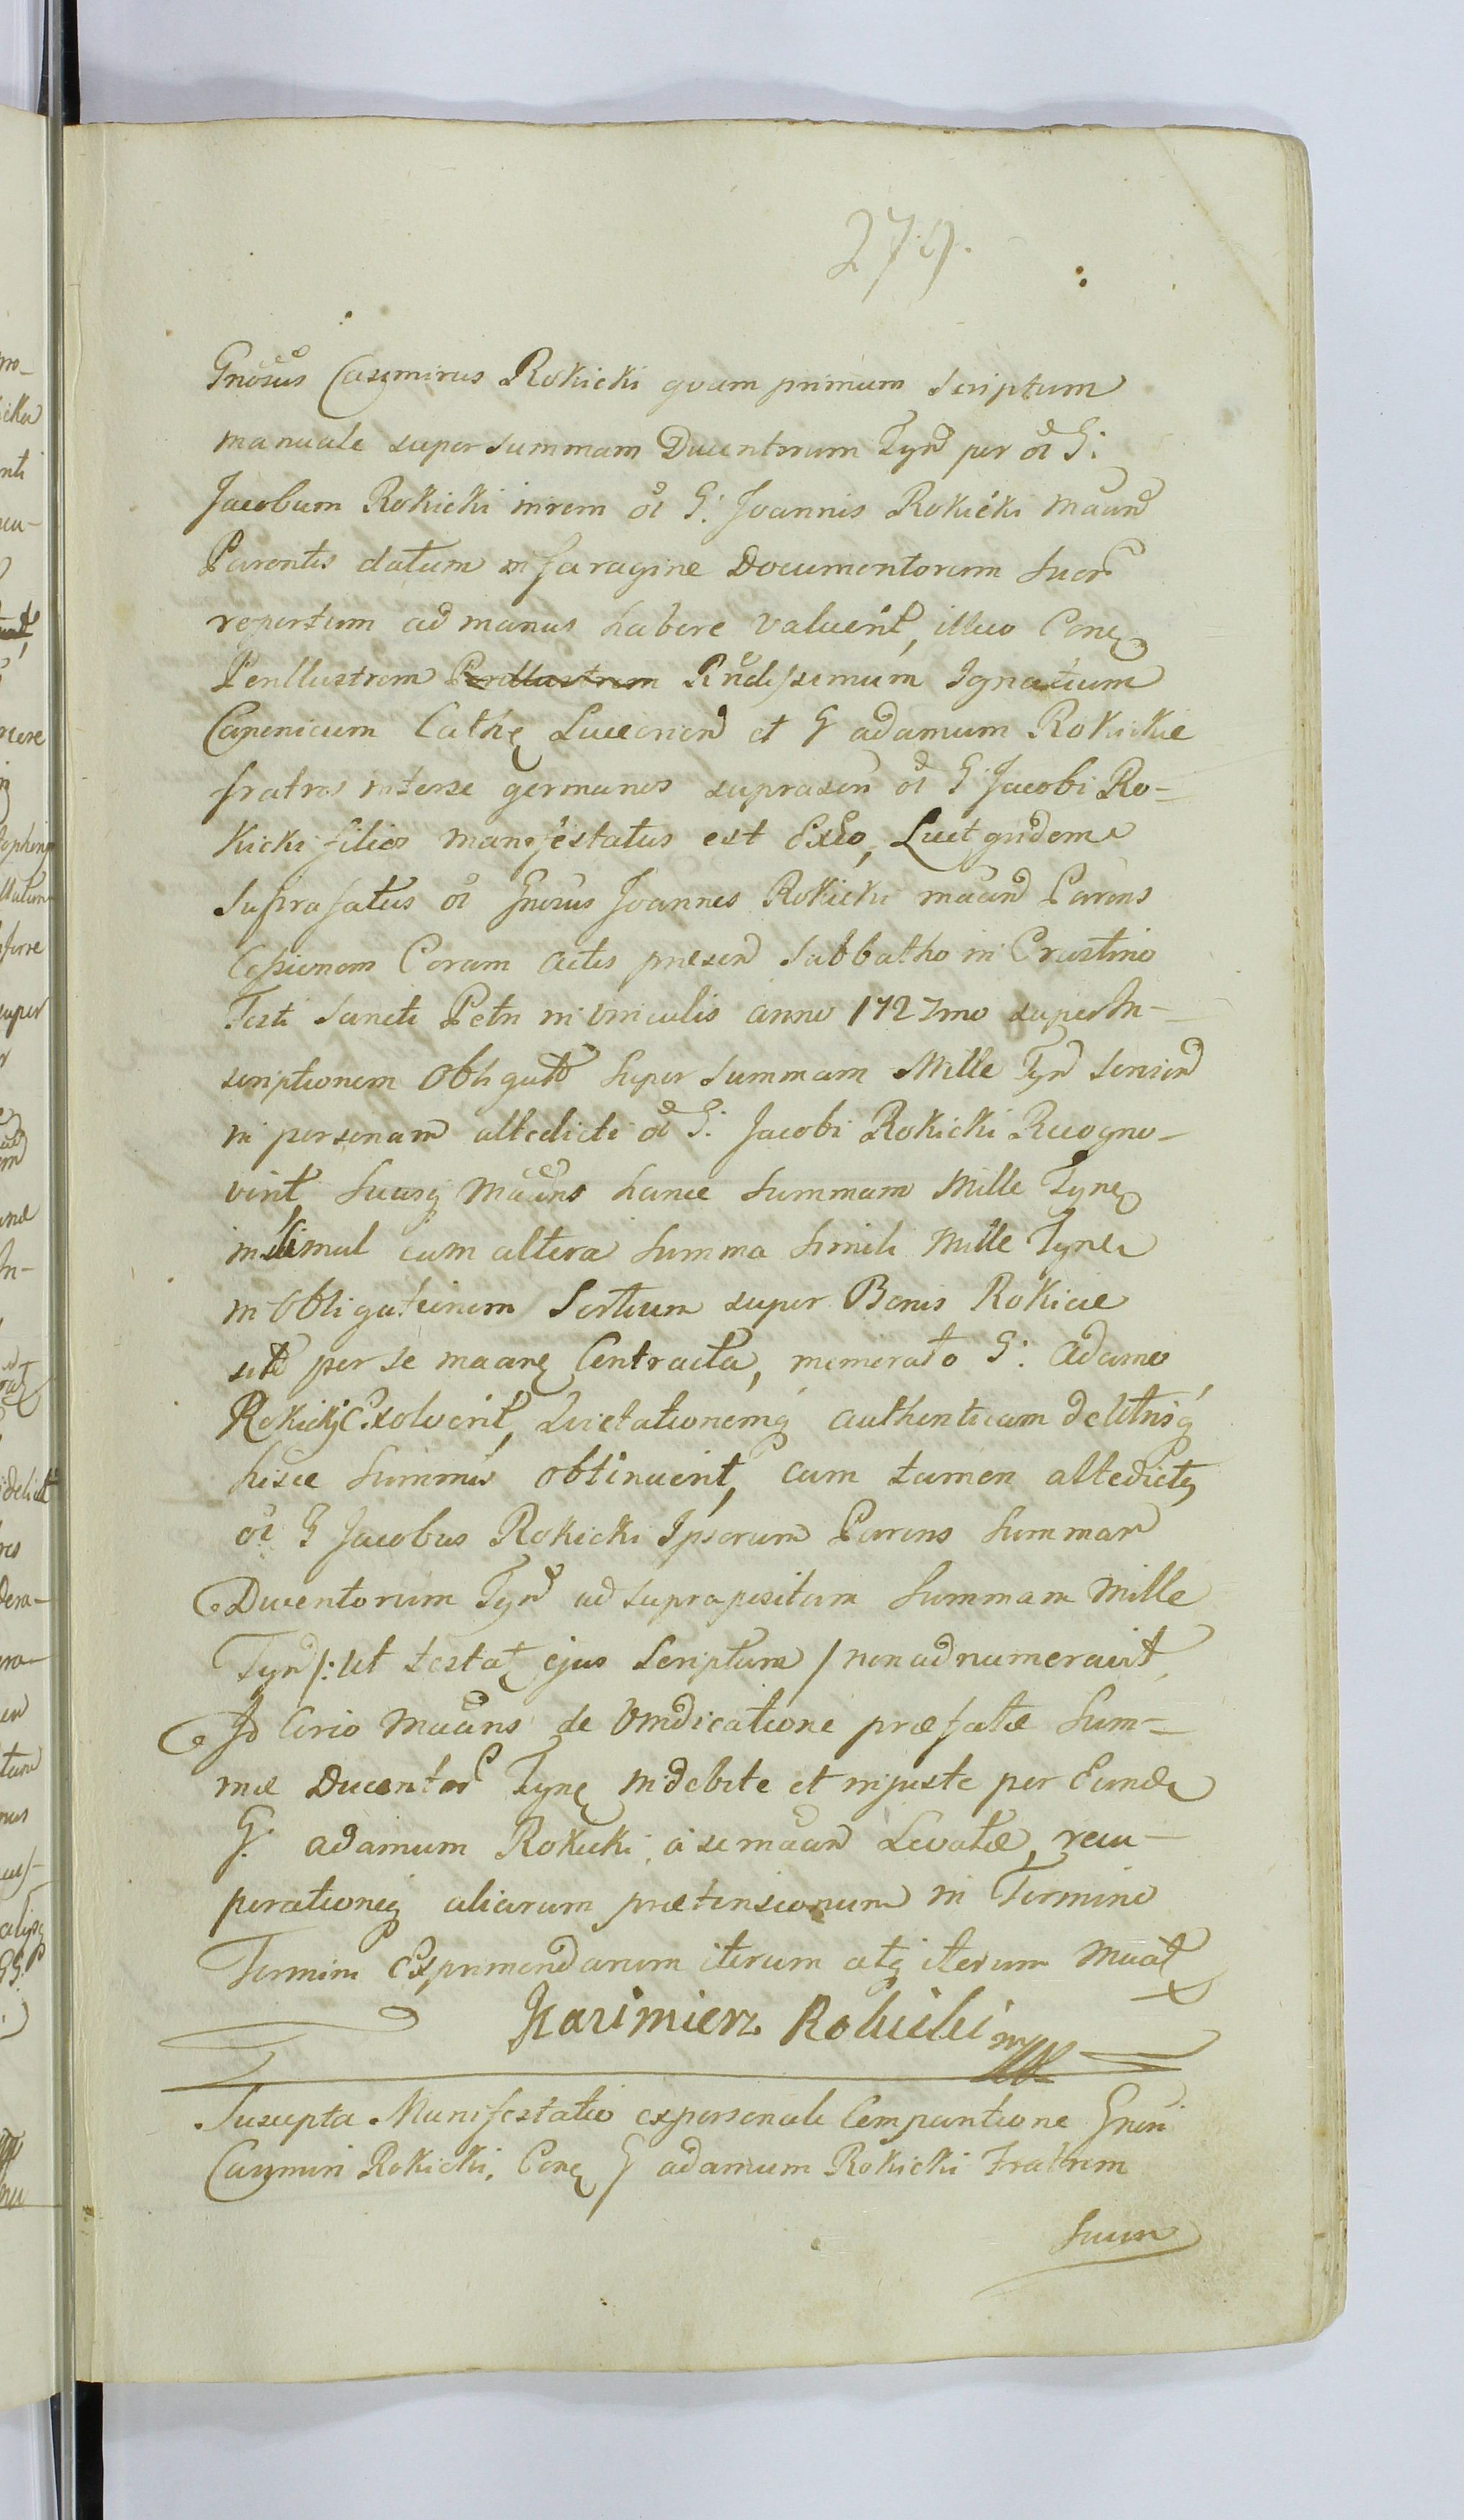 279.
Gnosus Casimirus Rokicki quam primum Scriptum
manuale super summam Ducentorum Tyn per ol G:
Jacobum Rokicki in rem ol G: Joannis Rokicki maan
Parentis datum in faragine Documentorum suor
repertum ad manus habere valuerit, illico Con
Perillustrem Perillustrem Rndissimum Ignatium
Canonicum Cathe Luceorien et G adamum Rokickie
fratres inter se germanos suprascri ol G: Jacobi Ro-
kicki filios manifestatus est Exeo, Licet quidem
suprafatus ol Gnosus Joannes Rokicki maan Parens
Cessionem Coram actis presen Sabbatho in Crastino
Festi Sancti Petri in Vinculis anno 1727mo super In-
scriptionem Obligato super summam Mille Tyn
in personam altedicti ol G: Jacobi Rokicki Recogno-
verit, suusq maans hance summam Mille Tyne
insimul cum altera summa simili Mille Tyne
in obligationem Sortium super Bonis Rokicie
sito per se maane Contracta, memorato G: Adamo
Rokicki Exolverit, Quietationemq authenticam de litrisq
hisce summis obtinuerit, cum tamen altedictus
ol G Jacobus Rokicki Ipsorum Parens summam
Ducentorum Tyn ad suprapositam summam Mille
Tyn /: ut testat ejus Scriptum / non adnumeravit,
Id Circo Maans de Vindicatione præfatæ Sum-
mæ Ducentor Tyne indebite et injuste per Eunde
G: adamum Rokicki, a se maan Levatæ, recu-
perationeq aliarum prætensionum in Termino
Termini Exprimendarum iterum atq iterum Maat
Kazimierz Rokicki mp
Suscepta Manifestatio ex personali Comparitione Gnosi
Casimiri Rokicki, Con G adamum Rokicki Fratrem
suum